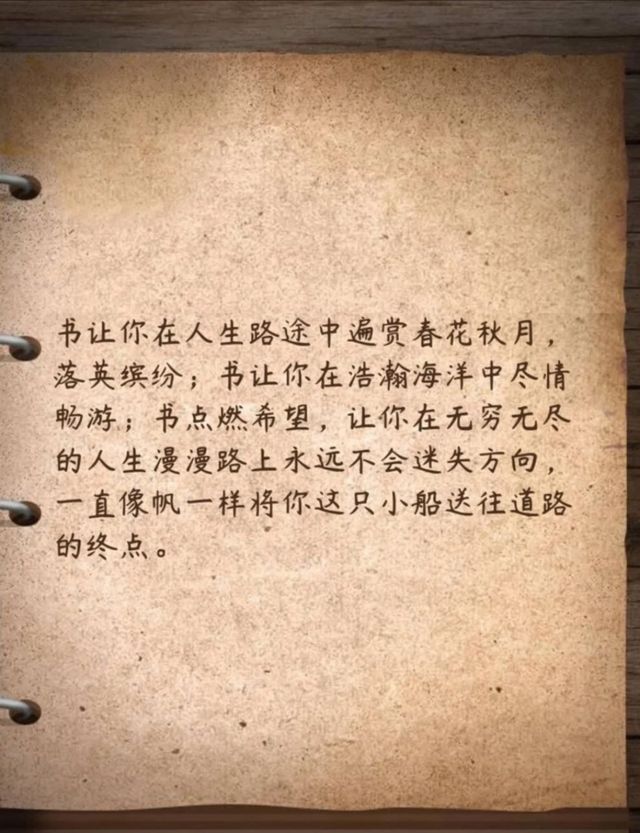 书让你在人生路途中遍赏春花秋月，
落英缤纷；书让你在浩瀚海洋中尽情
畅游；书点燃希望，让你在无穷无尽
的人生漫漫路上永远不会迷失方向，
一直像帆一样将你这只小船送往道路
的终点。